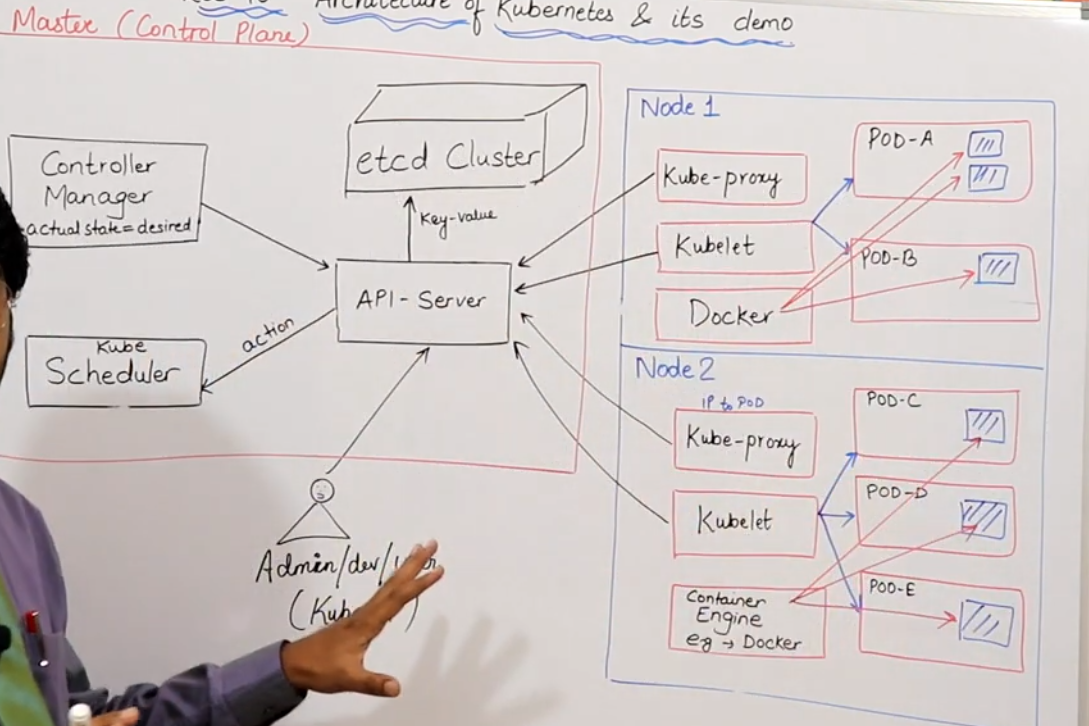 Architecture of Kubernetes & its demo
Master (Control Plane)
Controller
Manager
actual state = desired
etcd Cluster
Key-value
API - Server
action
Kube
Scheduler
Admin/dev/
Node 1
Kube-proxy
Kubelet
Docker
POD-A
POD-B
Node 2
IP to POD
Kube-proxy
Kubelet
Container
Engine
eg → Docker
POD-C
POD-D
POD-E